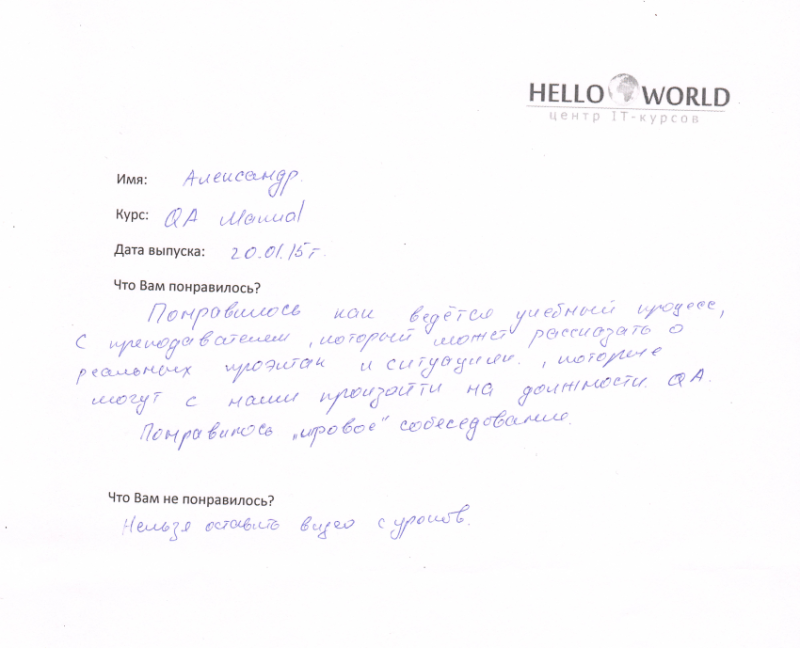 HELLO WORLD
центр IT-курсов
Имя: Александр.
Курс: QA Manual
Дата выпуска: 20.01.15г.
Что Вам понравилось?
Понравилось как ведётся учебный процесс,
с преподавателем, который может рассказать о
реальных проэктах и ситуациях, которые
могут с нами произойти на должности QA.
Понравилось „ировое" собеседование.
Что Вам не понравилось?
Нельзя оставить видео с уроков.